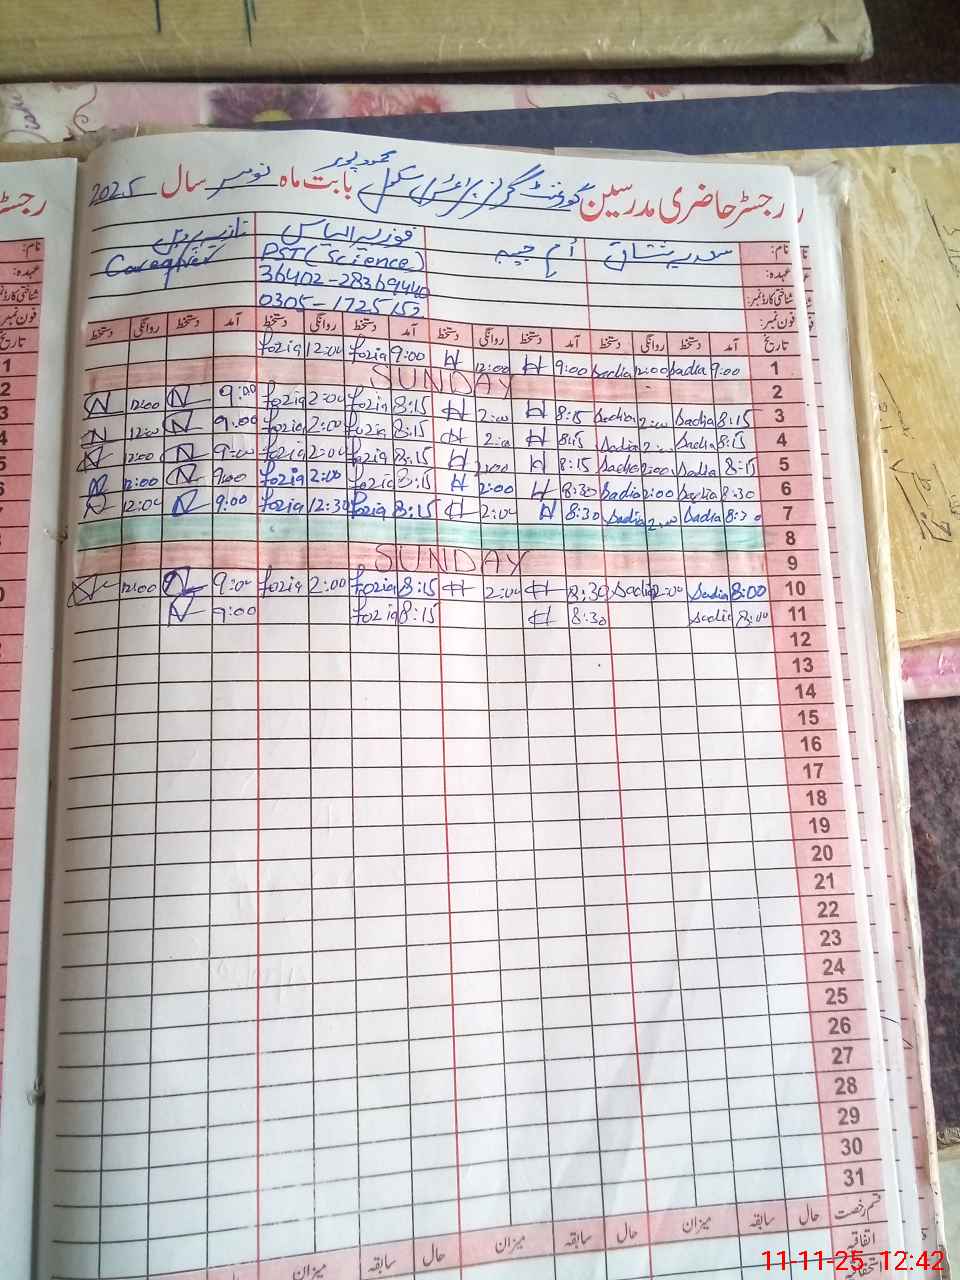 رجسٹر حاضری مدرسین گورنمنٹ گرلز پرائمری سکول محمود پور بابت ماہ نومبر سال 2025
نام: سعدیہ مشتاق ام حبیبہ فوزیہ الیاس نازیہ
عہدہ: PST (Science) Caregiver
شناختی کارڈ نمبر: 36402-28369440
فون نمبر: 0305-1725152
تاریخ آمد دستخط روانگی دستخط آمد دستخط روانگی دستخط آمد دستخط روانگی دستخط آمد دستخط روانگی دستخط
1 9:00 Sadia 12:00 Sadia 9:00 H 12:00 H 9:00 fozia 12:00 fozia
2 SUNDAY
3 8:15 Sadia 2:00 Sadia 8:15 H 2:00 H 8:15 fozia 2:00 fozia 9:00 N 12:00 N
4 8:15 Sadia 2: Sadia 8:15 H 2:00 H 8:15 fozia 2:00 fozia 9:00 N 12:00 N
5 8:15 Sadia 2:00 Sadia 8:15 H 2:00 H 8:15 fozia 2:00 fozia 9:00 N 12:00 N
6 8:30 Sadia 2:00 Sadia 8:30 H 2:00 H 8:15 fozia 2:00 fozia 9:00 N 12:00 N
7 8:30 Sadia 2:00 Sadia 8:30 H 2:00 H 8:15 fozia 12:30 fozia 9:00 N 12:00 N
8
9 SUNDAY
10 8:00 Sadia 2:00 Sadia 8:30 H 2:00 H 8:15 fozia 2:00 fozia 9:00 N 12:00 N
11 8:00 Sadia 8:30 H 8:15 fozia 9:00 N
12
13
14
15
16
17
18
19
20
21
22
23
24
25
26
27
28
29
30
31
قسم رخصت حال سابقہ میزان حال سابقہ میزان حال سابقہ میزان
اتفاقیہ
11-11-25 12:42